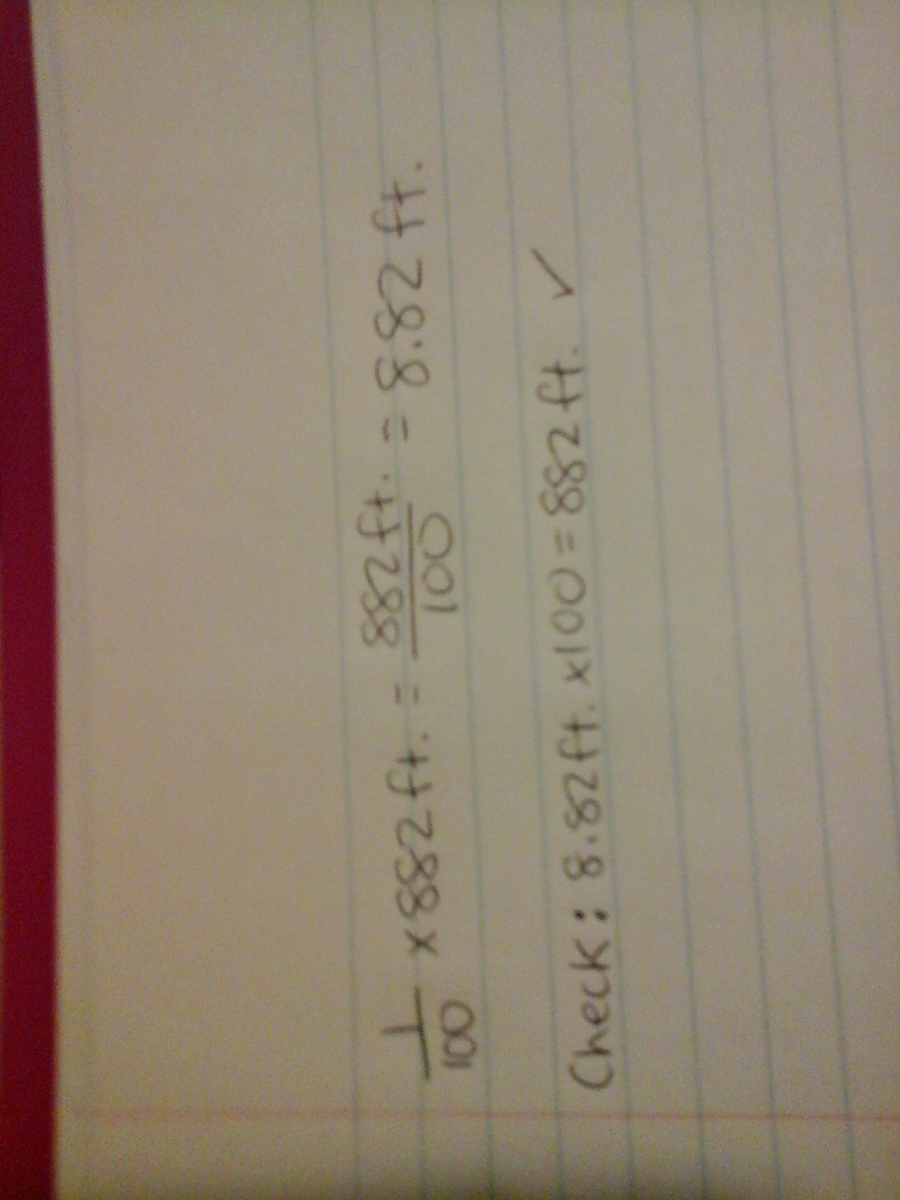 1/100 x 882 ft. = 882 ft./100 = 8.82 ft.
Check: 8.82 ft. x 100 = 882 ft. ✓